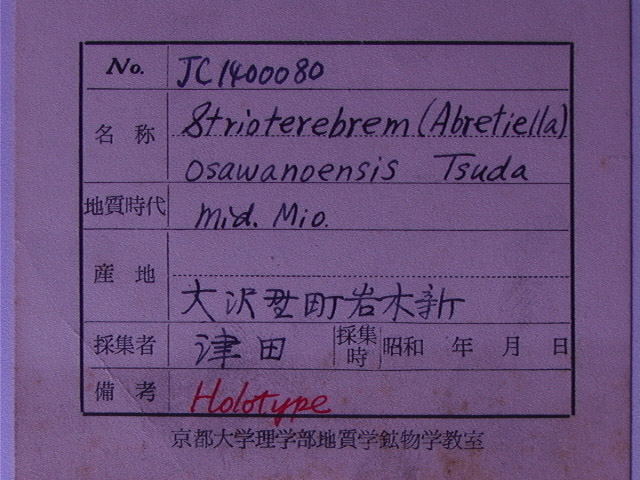 No. JC1400080
名称 Strioterebrem (Abretiella)
osawanoensis Tsuda
地質時代 mid. Mio.
産地
大沢野町岩木新
採集者 津田 採集時 昭和 年 月 日
備考 Holotype
京都大学理学部地質学鉱物学教室